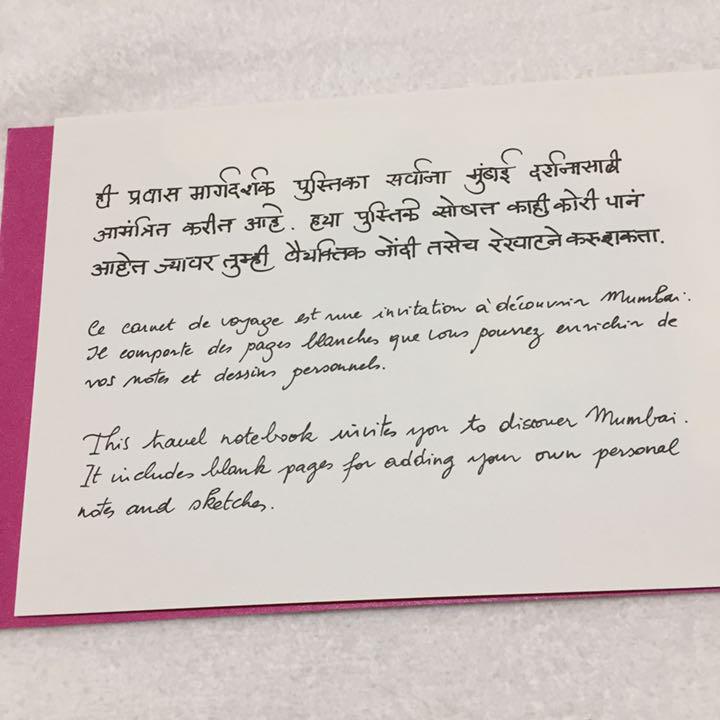 ही प्रवास मार्गदर्शक पुस्तिका सर्वांना मुंबई दर्शनासाठी
आमंत्रित करीत आहे. हया पुस्तिके सोबत काही कोरी पानं
आहेत ज्यावर तुम्ही वैयक्तिक नोंदी तसेच रेखाटने करु शकता.
Ce carnet de voyage est une invitation à découvrir Mumbai.
Il comporte des pages blanches que vous pourrez enrichir de
vos notes et dessins personnels.
This travel notebook invites you to discover Mumbai.
It includes blank pages for adding your own personal
notes and sketches.